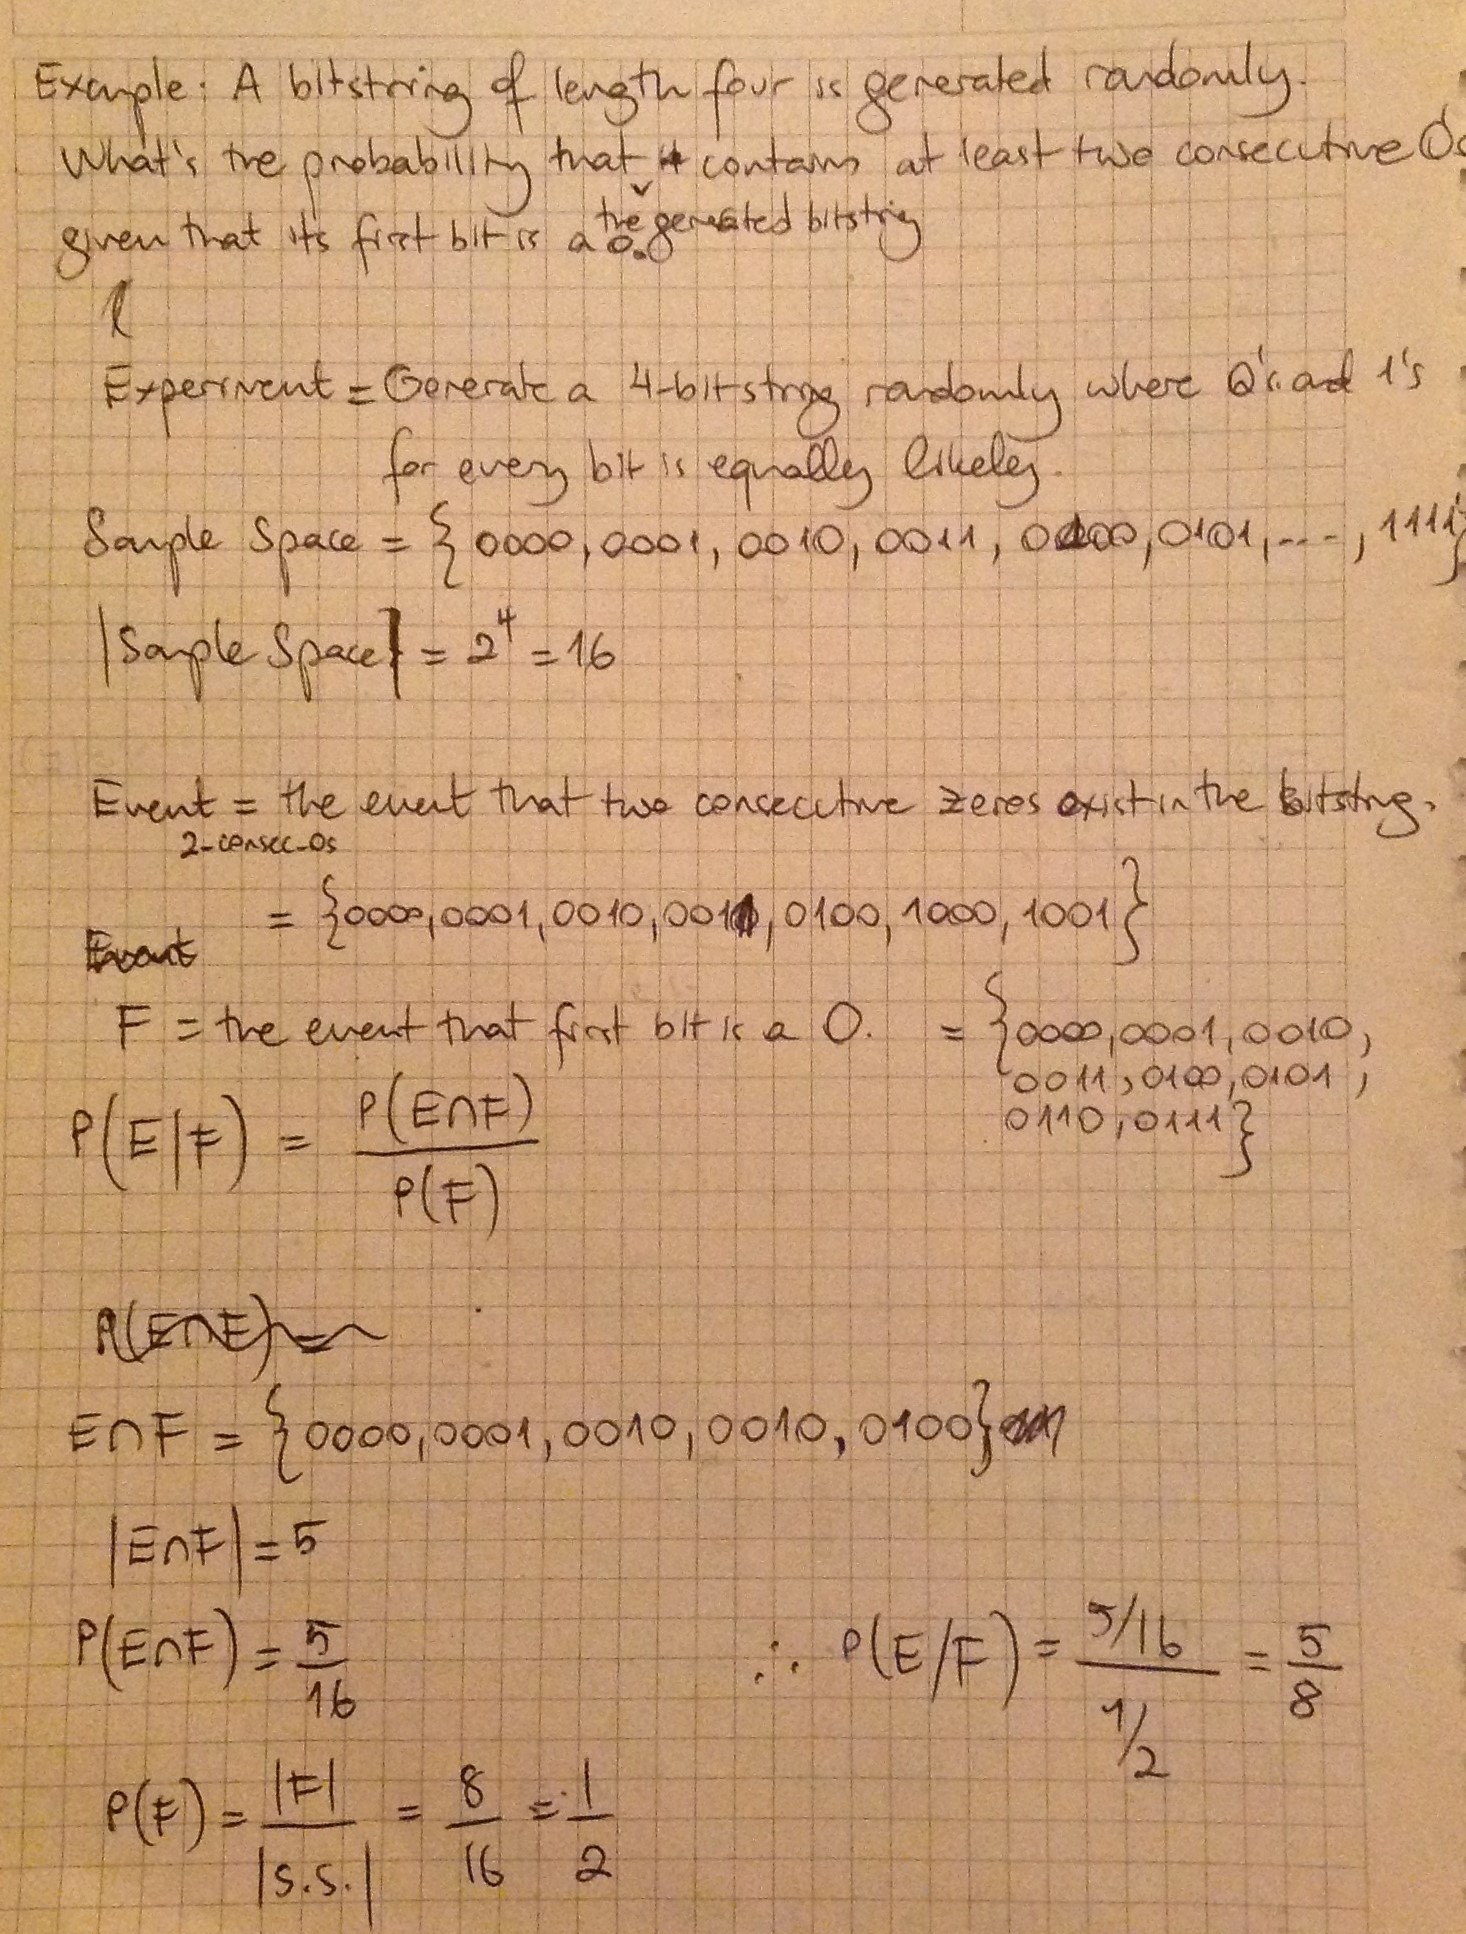 Example: A bitstring of length four is generated randomly.
What's the probability that it contains at least two consecutive 0's
the generated bitstring
given that its first bit is a 0.
Experiment = Generate a 4-bitstring randomly where 0's and 1's
for every bit is equally likely.
Sample Space = {0000, 0001, 0010, 0011, 0100, 0101, ..., 1111}
|Sample Space| = 2⁴ = 16
Event = the event that two consecutive zeros exist in the bitstring.
2-consec-0s
= {0000, 0001, 0010, 0011, 0100, 1000, 1001}
Event
F = the event that first bit is a 0. = {0000, 0001, 0010,
0011, 0100, 0101,
0110, 0111}
P(E|F) = P(E∩F)
P(F)
P(E∩F) =
E∩F = {0000, 0001, 0010, 0010, 0100}
|E∩F| = 5
P(E∩F) = 5/16
∴ P(E/F) = 5/16 / 1/2 = 5/8
P(F) = |F| / |S.S.| = 8/16 = 1/2